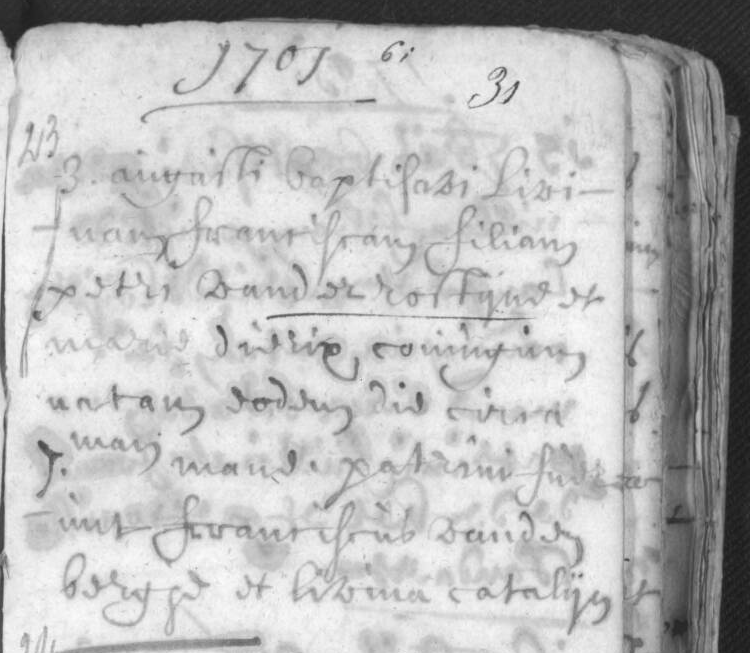 1701 61
31
23
3. augusti baptisavi livi-
nam franciscam filiam
petri vand er rostijne et
marie dierix, coniugum
natam eodem die circa
mane. patrini fuer
unt franciscus vanden
bergge et livina catalijn
24